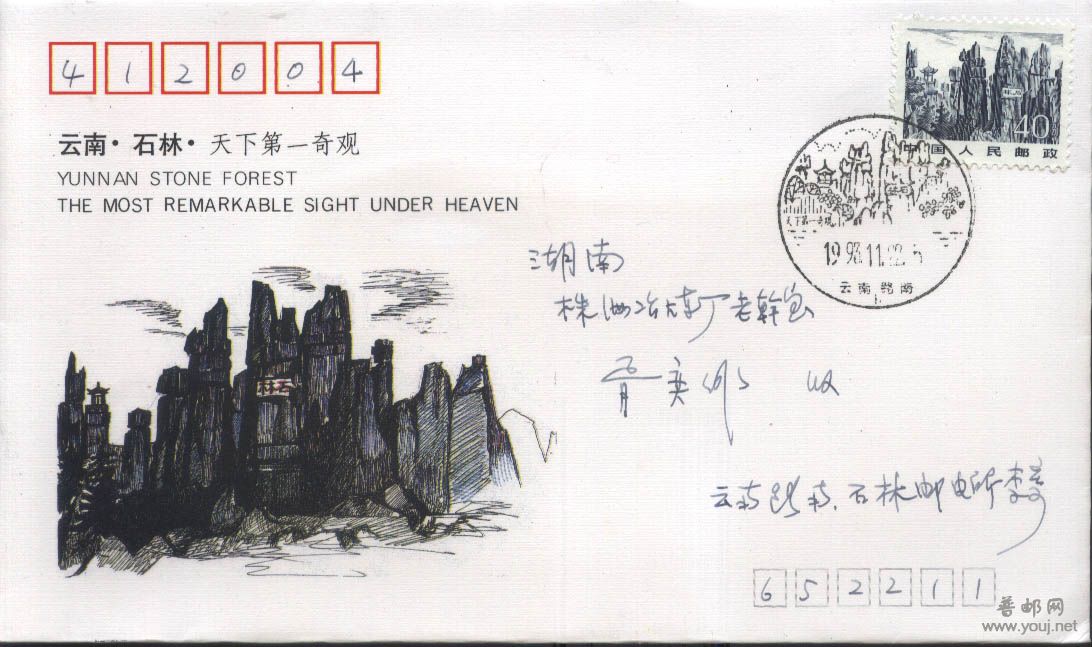 412004
云南·石林·天下第一奇观
YUNNAN STONE FOREST
THE MOST REMARKABLE SIGHT UNDER HEAVEN
40
中国人民邮政
天下第一奇观
1993.11.22.
云南路南
湖南
株洲冶炼厂老干室
收
云南路南石林邮电所李
652211
普邮网
www.youj.net